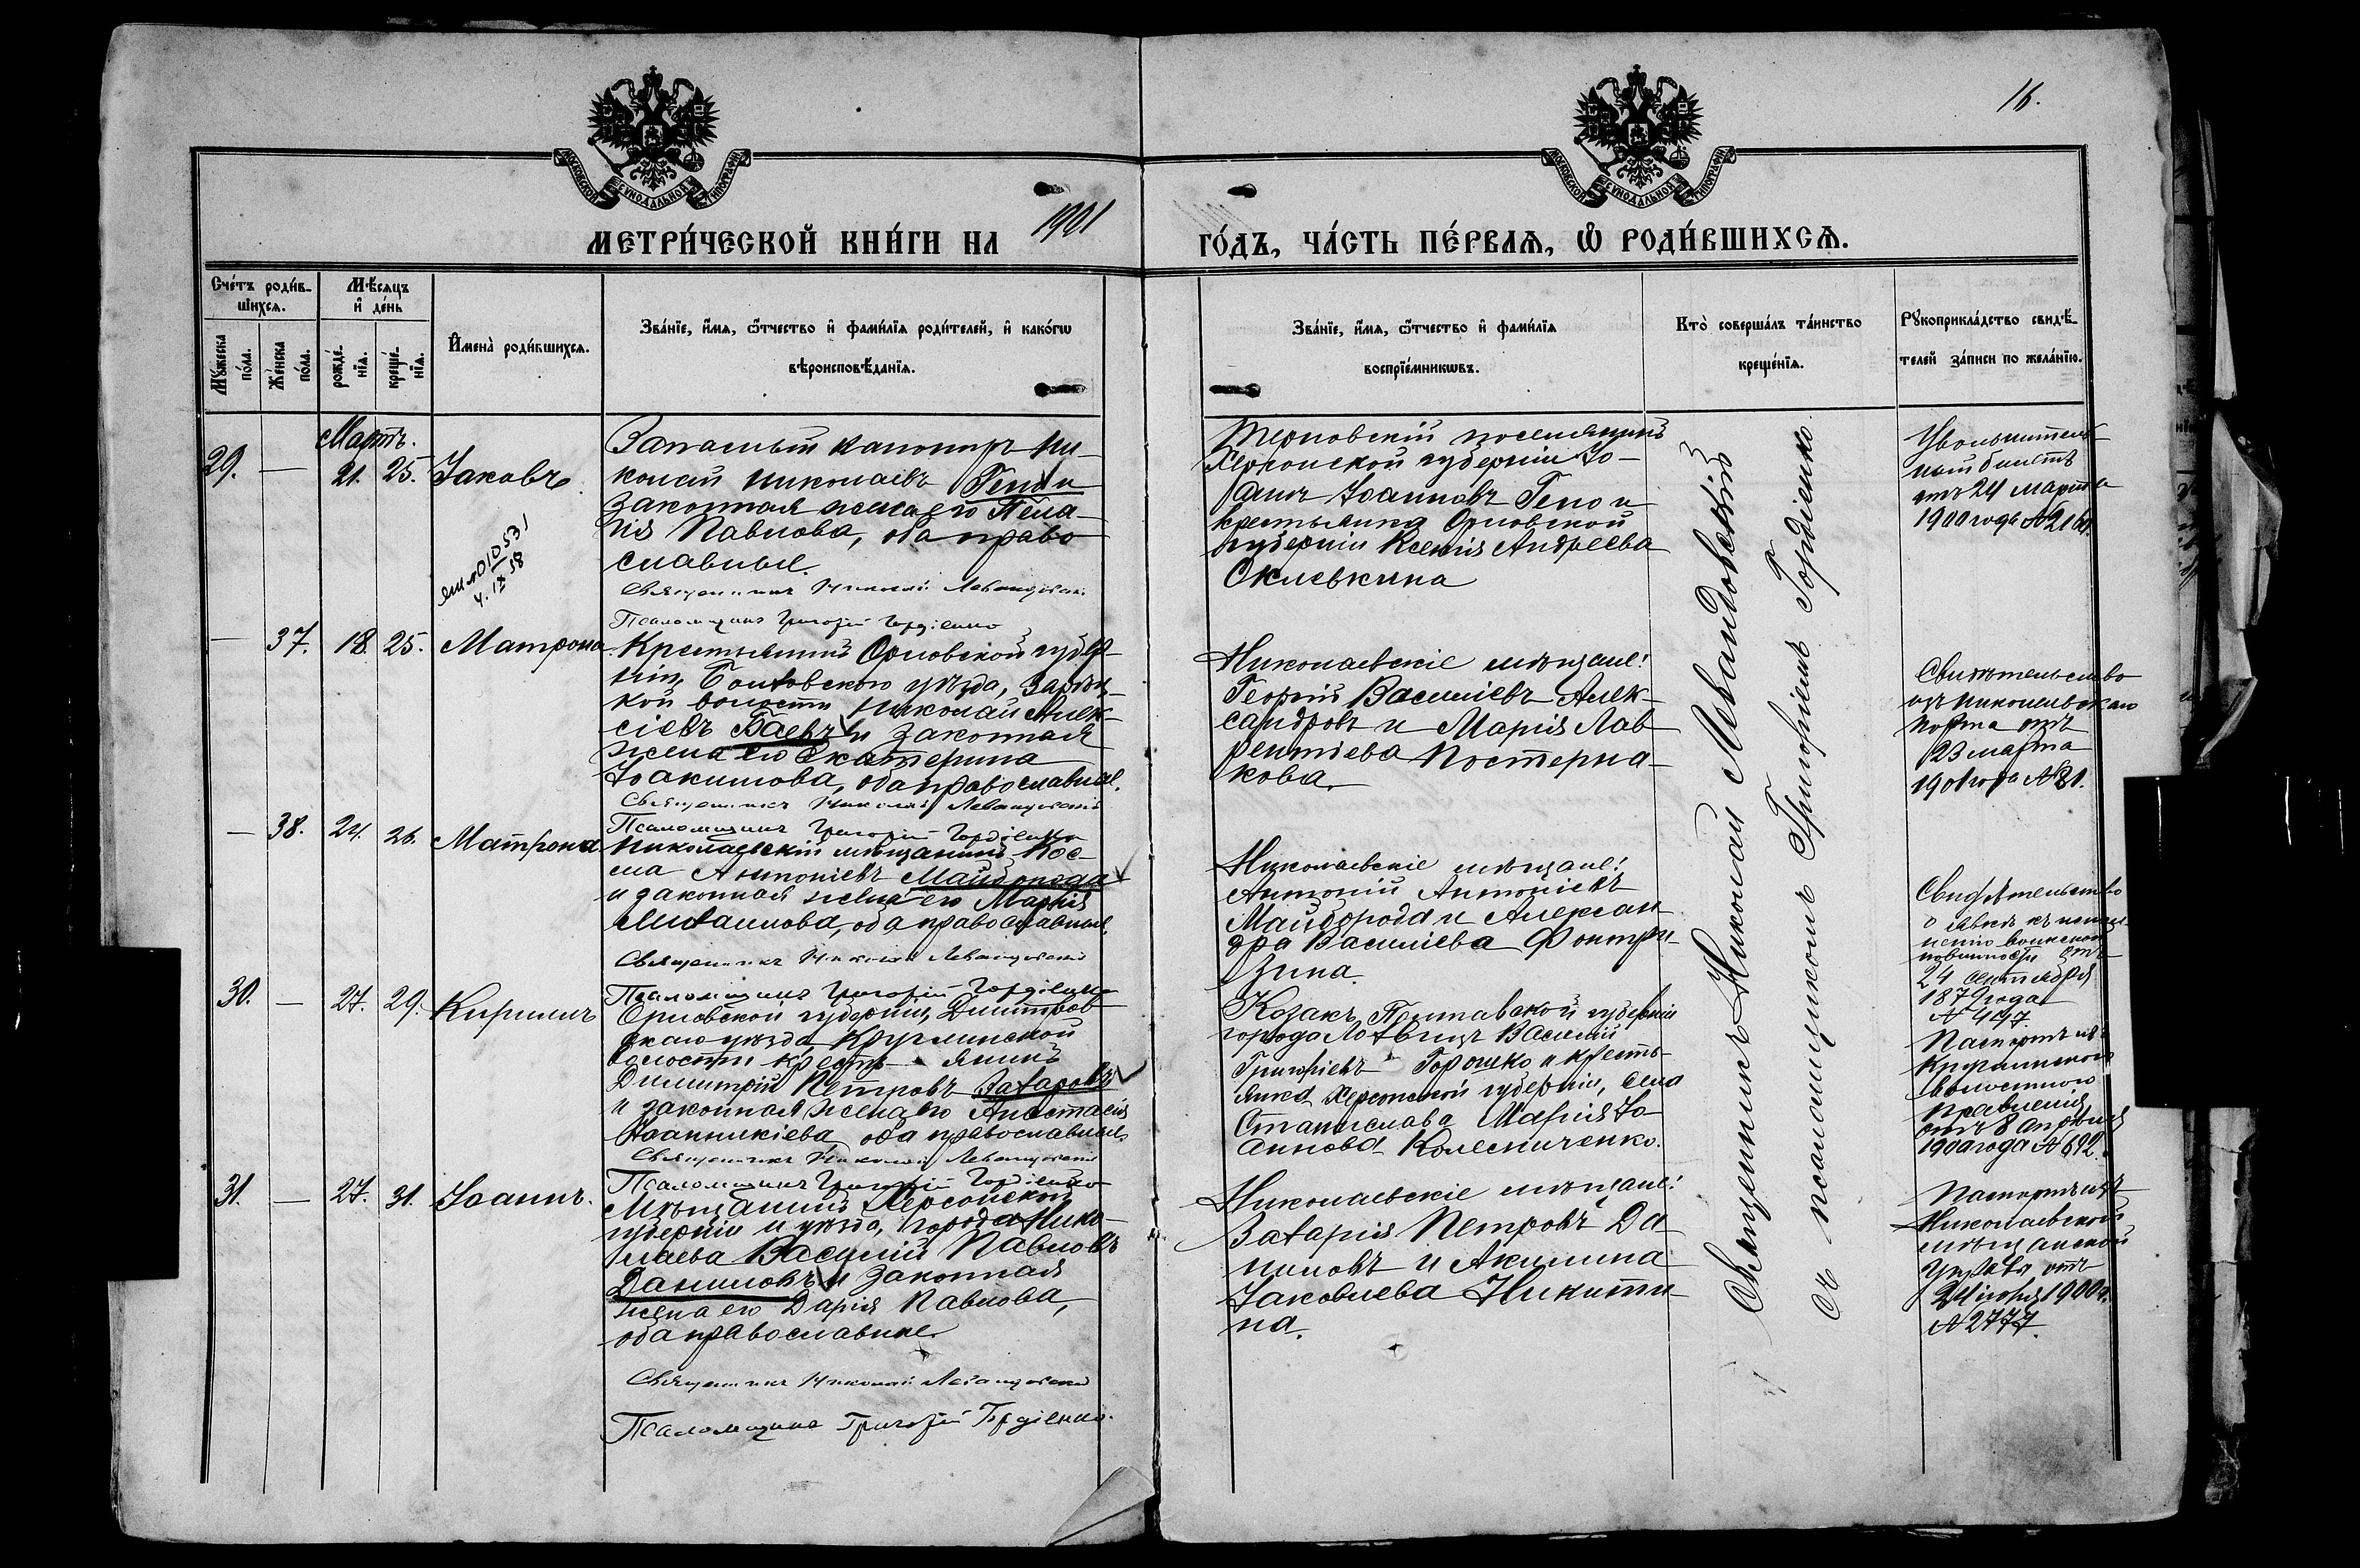 16.
МОСКОВСКОЙ СУНОДАЛЬНОЙ ТИПОГРАФІИ
МОСКОВСКОЙ СУНОДАЛЬНОЙ ТИПОГРАФІИ
МЕТРИ́ЧЕСКОЙ КНИ́ГИ НА 1901 ГО́ДЪ, ЧА́СТЬ ПЕ́РВАѦ, Ѽ РОДИ́ВШИХСѦ.
Сче́тъ роди́в-
шихсѧ.
Мꙋ́жеска по́ла.
Же́нска по́ла.
Мѣ́сѧцъ
и҆ де́нь
рожде́-
нїѧ.
креще́-
нїѧ.
И҆мена̀ роди́вшихсѧ.
Зва́нїе, и҆́мѧ, ѻ҆́тчество и҆ фами́лїѧ роди́телей, и҆ како́гѡ
вѣроисповѣ́данїѧ.
Зва́нїе, и҆́мѧ, ѻ҆́тчество и҆ фами́лїѧ
воспрїе́мникѡвъ.
Кто̀ соверша́лъ та́инство
креще́нїѧ.
Рꙋкоприкла́дство свидѣ́-
телей за́писи по жела́нїю.
Мартъ.
29. — 21. 25. Іаковъ
Запасный канониръ Ни-
колай Николаевъ Гено и
законная жена его Пела-
гія Павлова, оба право
славные.
Священникъ Николай Левандовскій
Псаломщикъ Григорій Гордіенко
Терновскій поселянинъ
Херсонской губерніи Іо-
аннъ Іоанновъ Гено и
крестьянка Орловской
губерніи Ксенія Андреева
Увольнитель-
ный билетъ
отъ 24 марта
1900 года
— 37. 18. 25. Матрона
Крестьянинъ Орловской губер-
ніи, Болховского уѣзда,
кой волости Николай Алек-
сіевъ Баевъ и законная
жена его Екатерина
Іоакимова, оба православные.
Священникъ Николай Левандовскій
Псаломщикъ Григорій Гордіенко
Николаевскіе мѣщане:
Георгій Василіевъ Алек-
сандровъ и Марія Лав-
рентіева Постерна-
кова.
Свидѣтельство
изъ Николаевскаго
порта отъ
23 марта
1901 года № 81.
— 38. 24. 26. Матрона
Николаевскій мѣщанинъ Кос-
ма Антоніевъ Майборода
и законная жена его Марія
Михаилова, оба православные.
Священникъ Николай Левандовскій
Псаломщикъ Григорій Гордіенко
Николаевскіе мѣщане:
Антоній Антоніевъ
Майборода и Алексан-
дра Василіева
Свидѣтельство
о явкѣ къ испол-
ненію воинской
повинности отъ
24 сентября
1879 года
№ 447.
30. — 27. 29. Кириллъ
Орловской губерніи, Дмитров-
скаго уѣзда, Круглинской
волости крестьянинъ
Димитрій Петровъ Захаровъ
и законная жена его Анастасія
Іоанникіева, оба православные
Священникъ Николай Левандовскій
Псаломщикъ Григорій Гордіенко
Козакъ Полтавской губерніи
города Лохвицы Василій
Григоріевъ Горошко и кресть-
янка Херсонской губерніи, села
Станислава Марія Іо-
аннова Колесниченко.
Паспортъ изъ
Круглинскаго
волостного
правленія
отъ 8 апрѣля
1900 года № 692.
31. — 27. 31. Іоаннъ.
Мѣщанинъ Херсонской
губерніи и уѣзда, города Нико-
лаева Василій Павловъ
Даниловъ и законная
жена его Дарія Павлова,
оба православные.
Священникъ Николай Левандовскій
Псаломщикъ Григорій Гордіенко.
Николаевскіе мѣщане:
Захарія Петровъ Да-
ниловъ и Акилина
Іаковлева Никити-
на.
Паспортъ изъ
Николаевской
мѣщанской
управы отъ
1900 г.
№ 2777.
Священникъ Николай Левандовскій
съ псаломщикомъ Григоріемъ Гордіенко